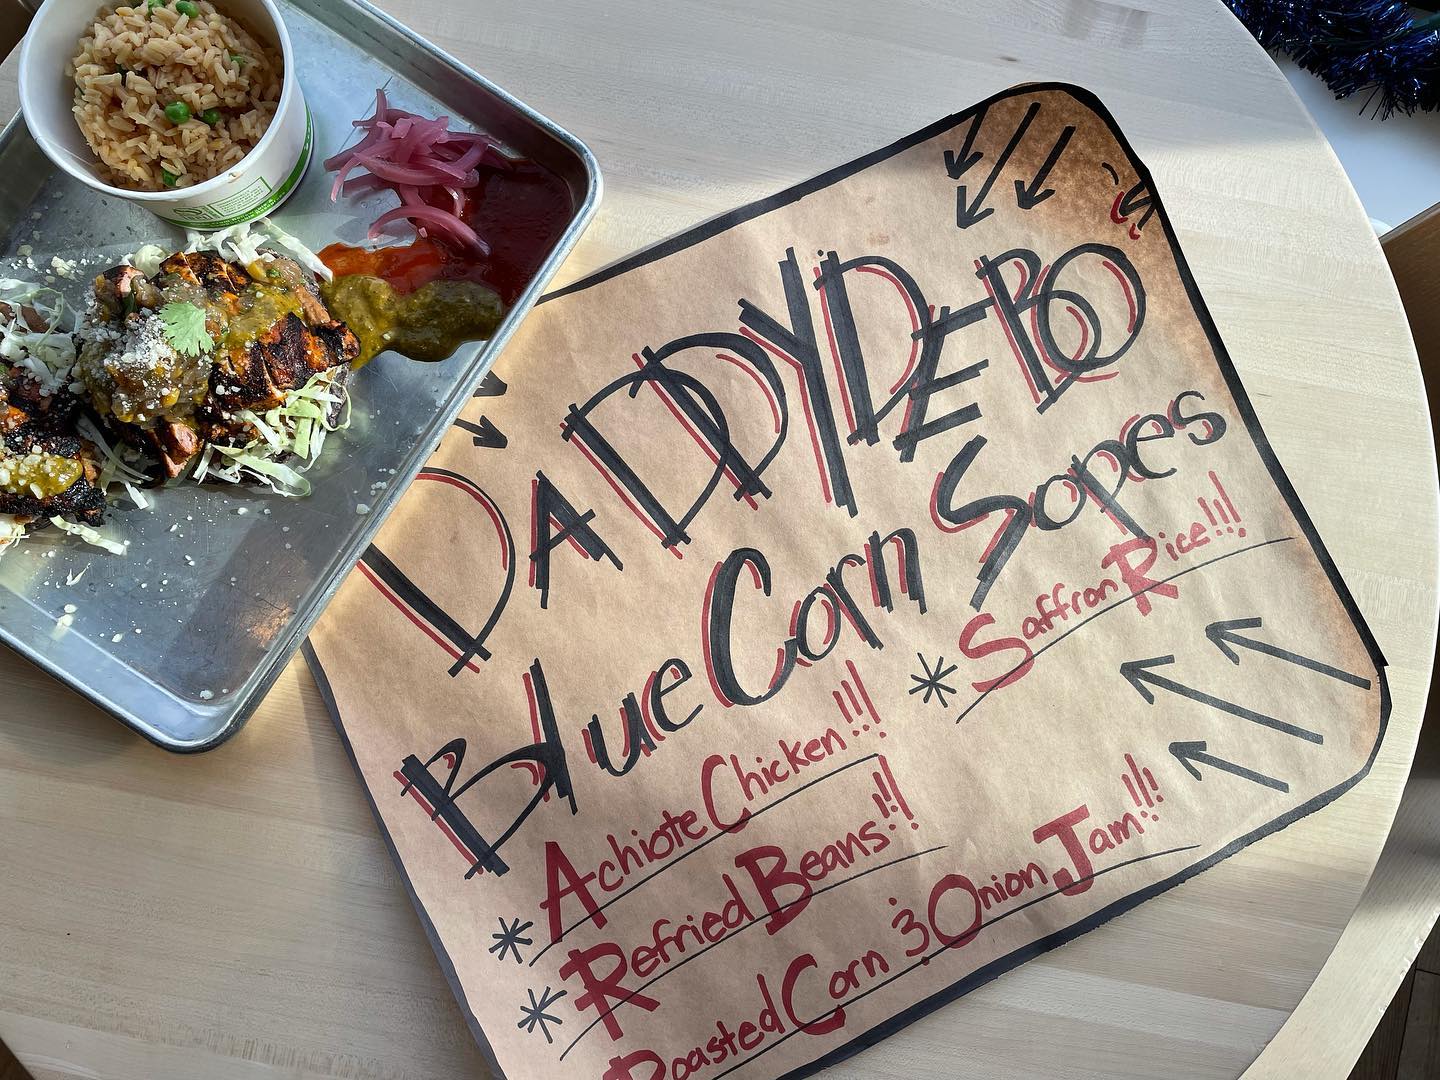 DADDY DEBO
Blue Corn Sopes
* Achiote Chicken!!!
* Saffron Rice!!!
* Refried Beans!!!
Roasted Corn & Onion Jam!!!